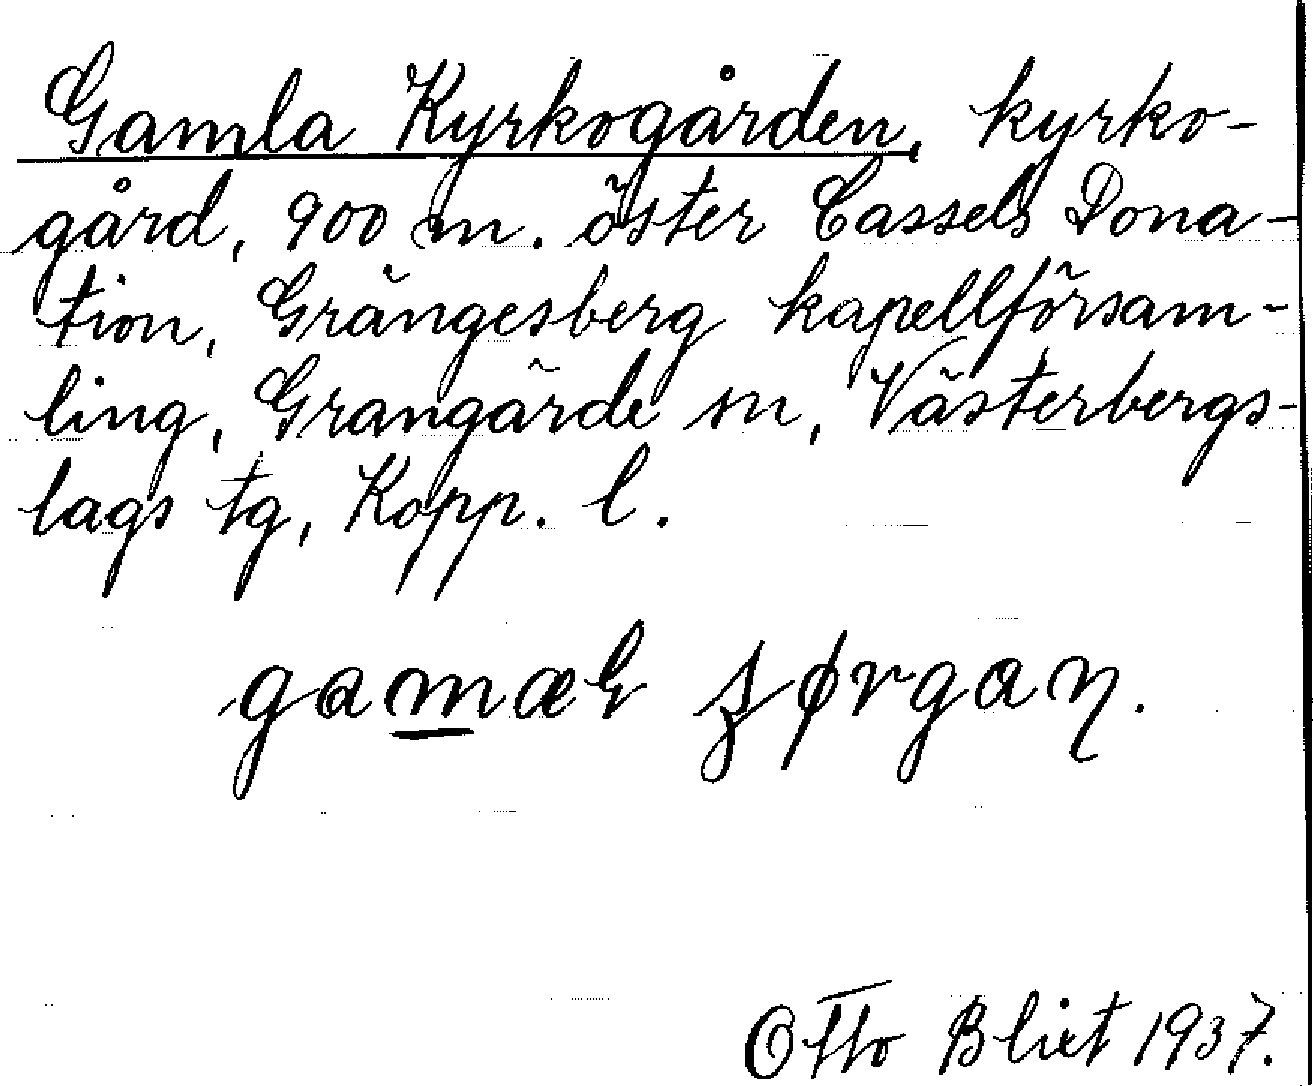 Gamla Kyrkogården, kyrko-
gård, 900 m. öster Cassels Dona-
tion, Grängesberg kapellförsam-
ling, Grangärde sn, Västerbergs-
lags tg, Kopp. l.
Otto Blixt 1937.